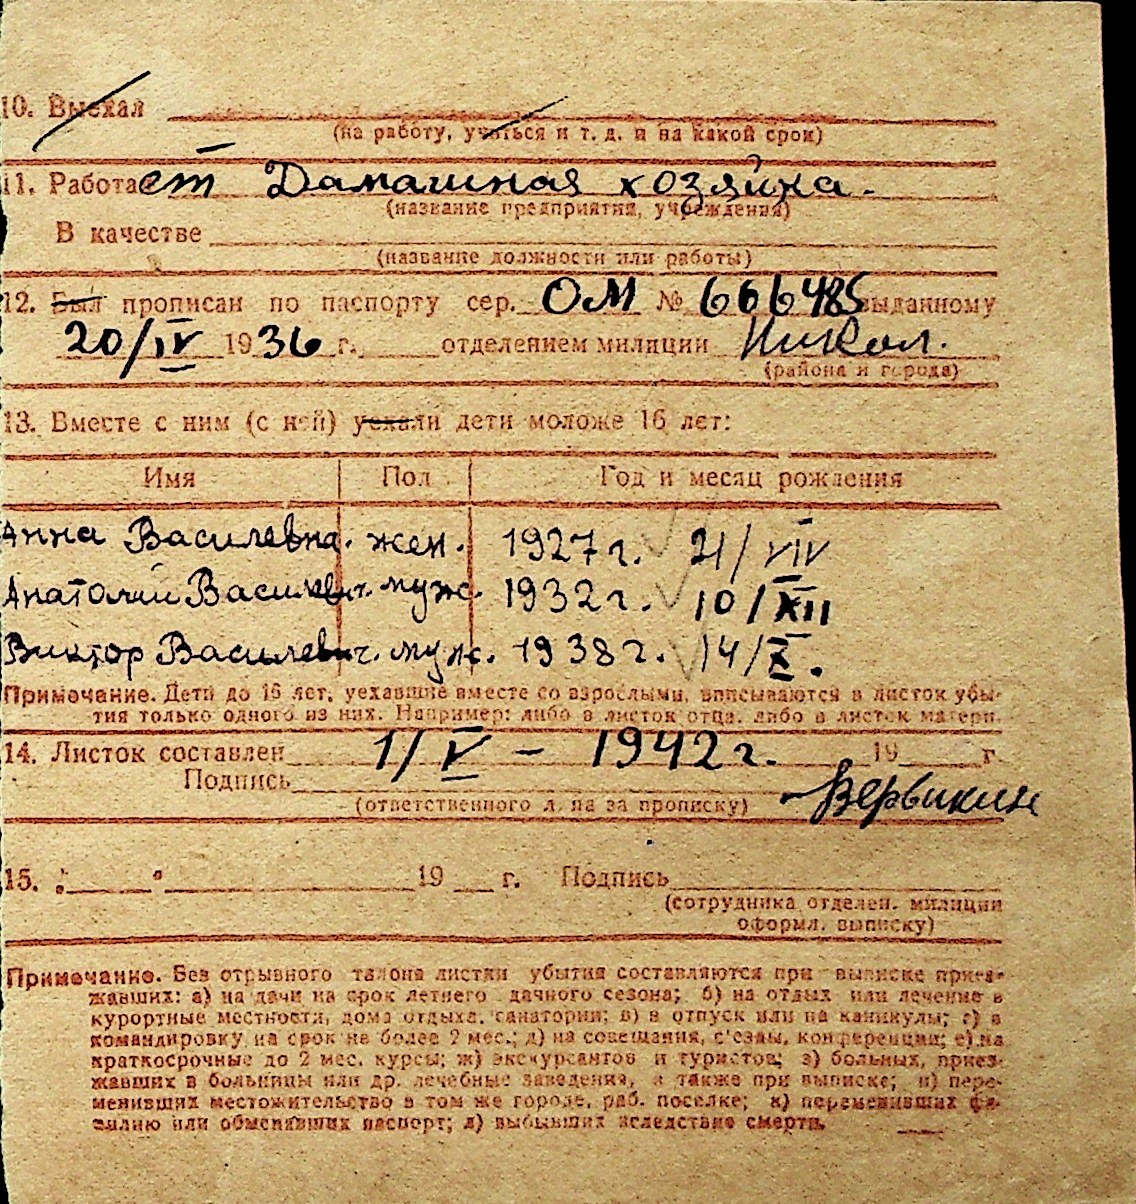 10. Выехал
(на работу, учиться и т. д. и на какой срок)
11. Работает Дамашная хозяйка.
(название предприятия, учреждения)
В качестве
(название должности или работы)
12. Был прописан по паспорту сер. ОМ № 666485 выданному
20/IV 1936 г. отделением милиции Никол.
(района и города)
13. Вместе с ним (с ней) уехали дети моложе 16 лет:
Имя Пол Год и месяц рождения
Анна Василевна. жен. 1927 г. 21/VIV
Анатолий Василевич. муж. 1932 г. 10/XII
Виктор Василевич. муж. 1938 г. 14/X.
Примечание. Дети до 16 лет, уехавшие вместе со взрослыми, вписываются в листок убы-
тия только одного из них. Например: либо в листок отца, либо в листок матери.
14. Листок составлен 1/V – 1942 г. 19 г.
Подпись Вервикин
(ответственного л. па за прописку)
15. " " 19 г. Подпись
(сотрудника отделен. милиции
оформл. выписку)
Примечание. Без отрывного талона листки убытия составляются при выписке приез-
жавших: а) на дачи на срок летнего дачного сезона; б) на отдых или лечение в
курортные местности, дома отдыха, санатории; в) в отпуск или на каникулы; г) в
командировку на срок не более 2 мес.; д) на совещания, с'езды, конференции; е) на
краткосрочные до 2 мес. курсы; ж) экскурсантов и туристов; з) больных, приез-
жавших в больницы или др. лечебные заведения, а также при выписке; и) пере-
менивших местожительство в том же городе, раб. поселке; к) переменивших фа-
милию или обменявших паспорт; л) выбывших вследствие смерти.